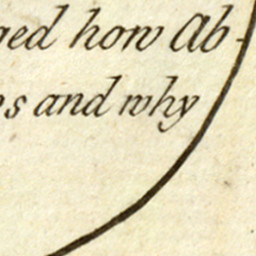 ged how Ab-
os and why